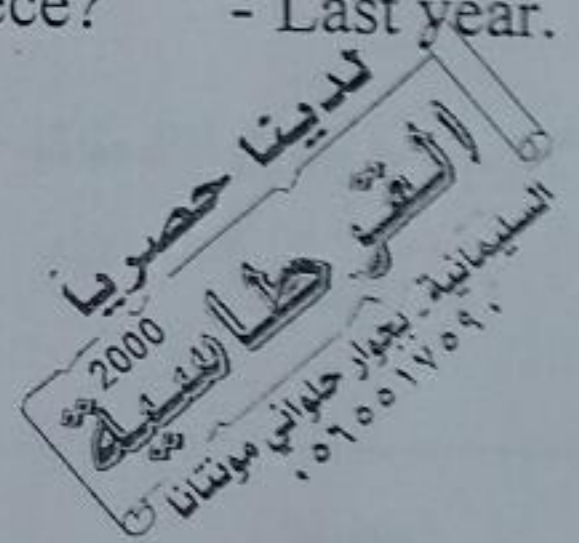 ece? - Last year.
لدينا حصريا
القرطاسية
2000
السليمانية - بجوار حلواني مونتانا
٠٥٦٥٥١٧٥٩٠